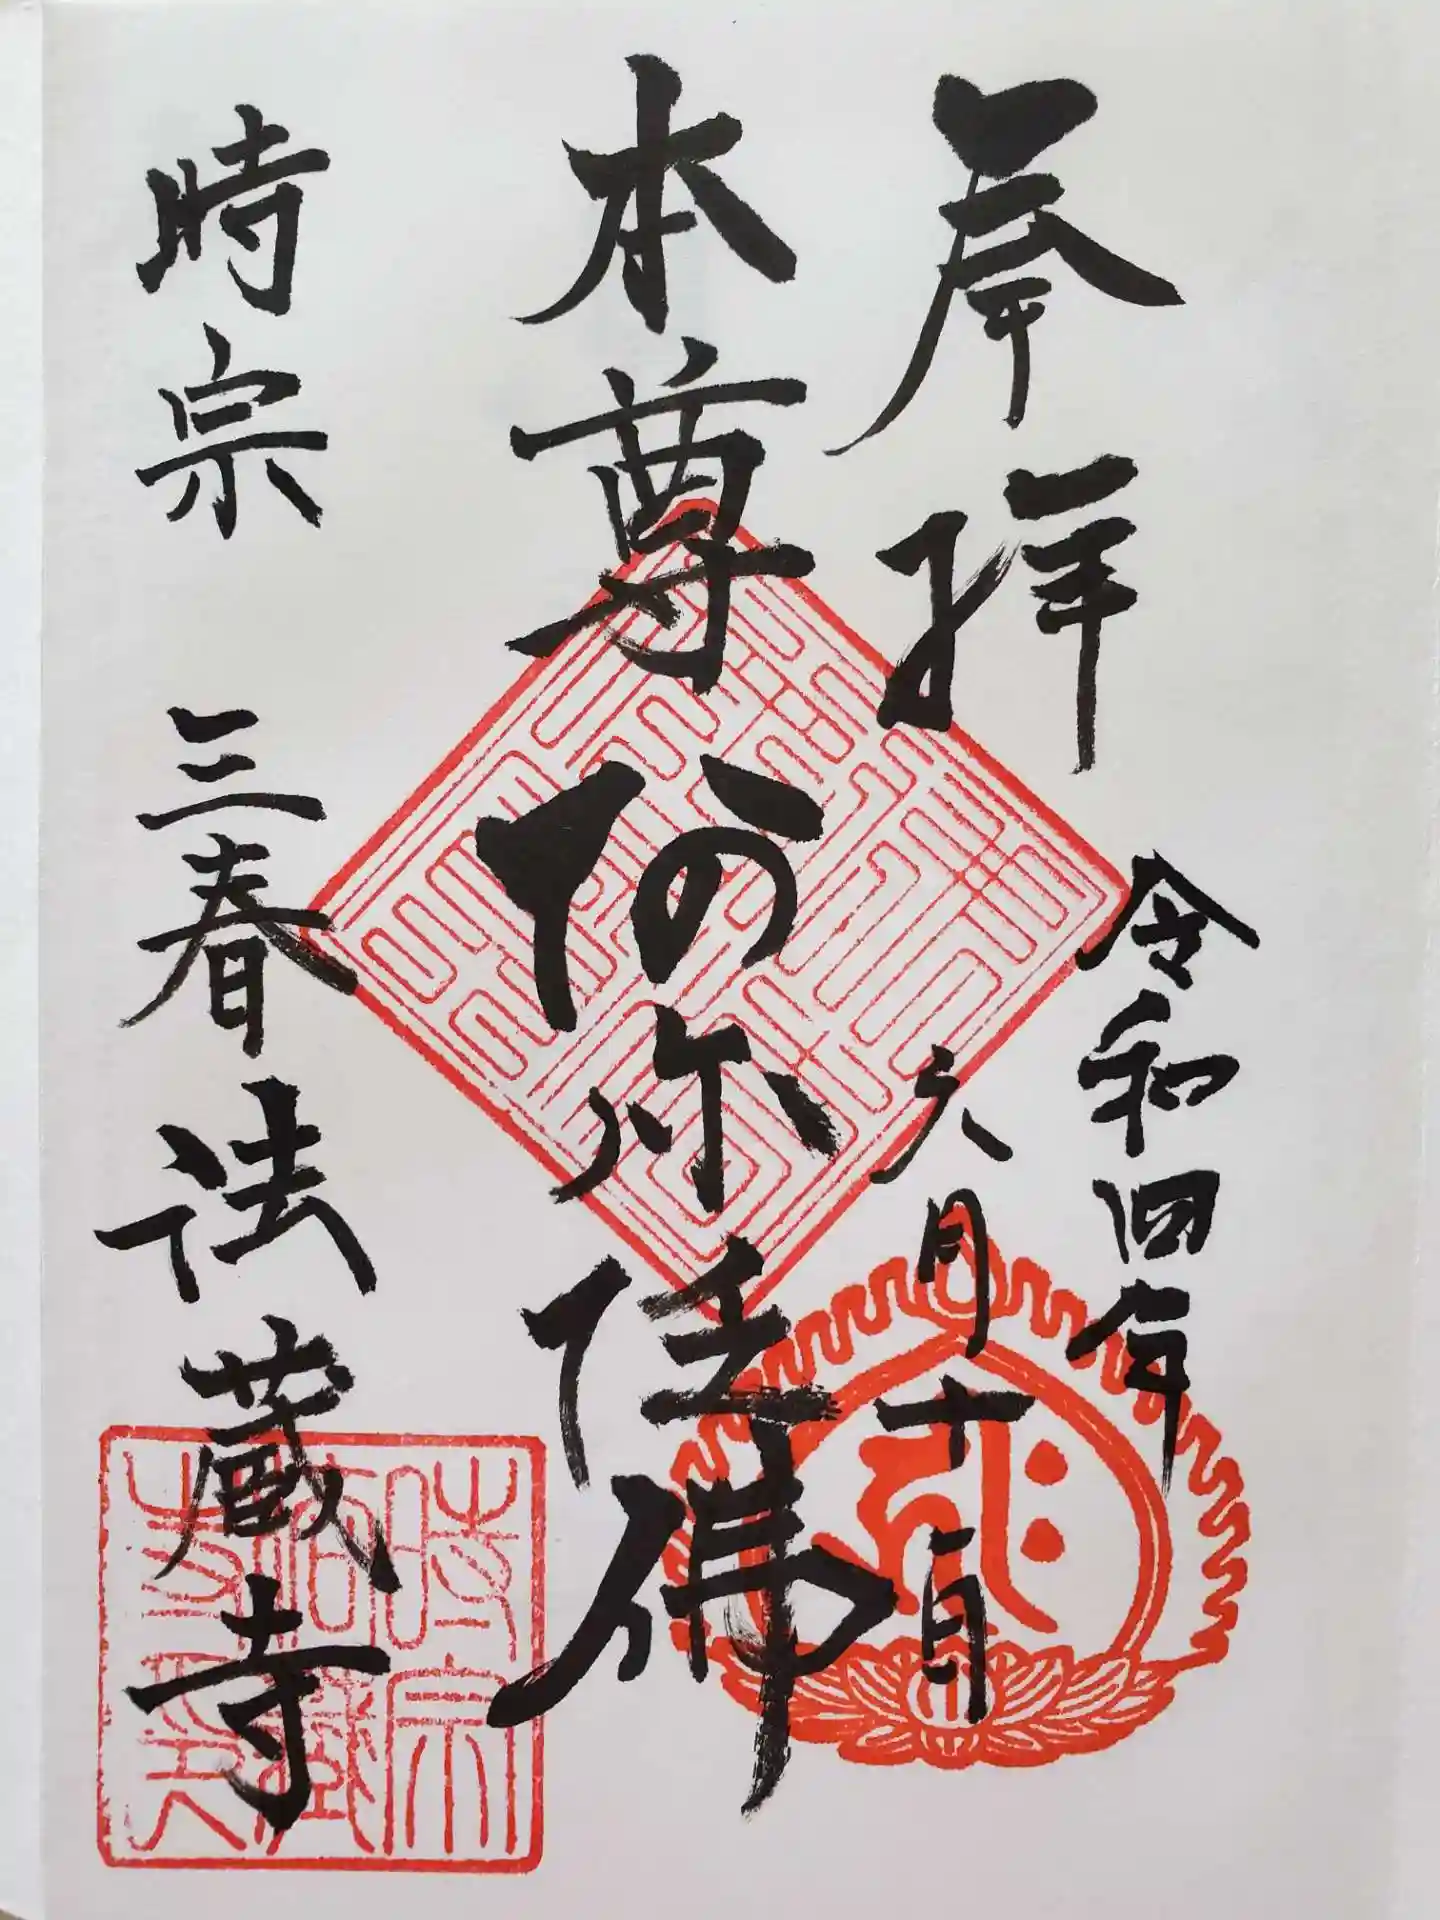 奉拝
令和四年
六月十一日
本尊阿弥陀佛
時宗 三春法蔵寺